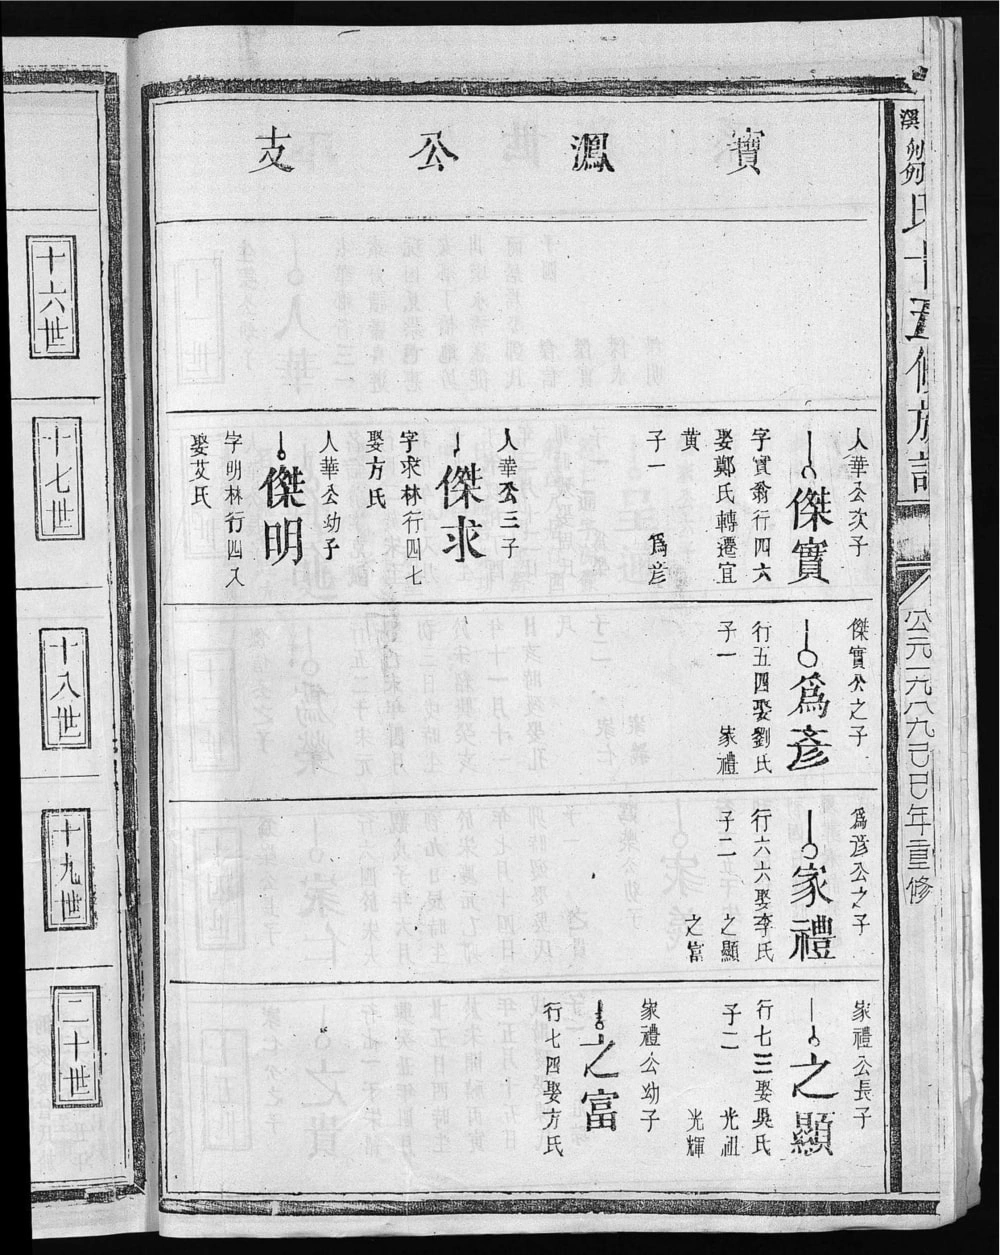 溪鄒氏十五修族譜
公元一九八九己巳年重修
寶澠公支
人華公次子
傑寶
字寶翁行四六
娶鄭氏轉遷宜
黃
子一 爲彥
人華公三子
傑求
字求林行四七
娶方氏
人華公幼子
傑明
字明林行四又
娶艾氏
傑實公之子
爲彥
行五四娶劉氏
子一 家禮
爲彥公之子
家禮
行六六娶李氏
子二 之顯
之富
家禮公長子
之顯
行七三娶吳氏
子二 光祖
光輝
家禮公幼子
之富
行七四娶方氏
十六世
十七世
十八世
十九世
二十世